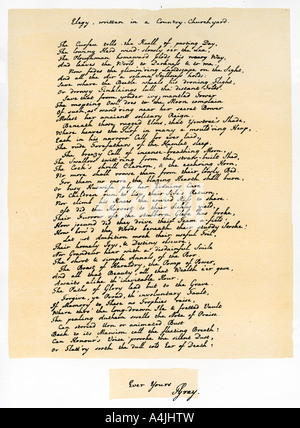 Elegy, written in a Country Churchyard.
The Curfew tolls the Knell of parting Day,
The lowing Herd wind slowly o'er the Lea,
The Plowman homeward plods his weary Way,
And leaves the World to Darkness & to me.
Now fades the glimm'ring Landscape on the Sight,
And all the Air a solemn Stillness holds;
Save where the Beetle wheels his droning Flight,
Or drowsy Tinklings lull the distant Folds.
Save that from yonder ivy-mantled Tower
The mopeing Owl does to the Moon complain
Of such, as wand'ring near her secret Bower
Molest her ancient solitary Reign.
Beneath those rugged Elms, that Yewtree's Shade,
Where heaves the Turf in many a mould'ring Heap,
Each in his narrow Cell for ever laid,
The rude Forefathers of the Hamlet sleep.
The breezy Call of incense-breathing Morn,
The Swallow twitt'ring from the straw-built Shed,
The Cock's shrill Clarion, & the ecchoing Horn,
No more shall rouse them from their lowly Bed.
For them no more the blazing Hearth shall burn,
Or busy Huswife ply her Evening Care;
No Children run to lisp their Sire's Return,
Or climb his Knees the envied Kiss to share.
Oft did the Harvest to their Sickle yield,
Their Furrow oft the stubborn Glebe has broke;
How jocund did they drive their Team afield!
How bow'd the Woods beneath their sturdy Stroke!
Let not Ambition mock their useful Toil,
Their homely Joys, & Destiny obscure;
Nor Grandeur hear with a disdainful Smile
The short & simple Annals of the Poor.
The Boast of Heraldry, the Pomp of Power,
And all that Beauty, all that Wealth e'er gave,
Awaits alike th' inevitable Hour.
The Paths of Glory lead but to the Grave.
Forgive, ye Proud, th' involuntary Fault,
If Memory to These no Trophies raise,
Where thro' the long-drawn Ile & fretted Vault
The pealing Anthem swells the Note of Praise.
Can storied Urn or animated Bust
Back to its Mansion call the fleeting Breath?
Can Honour's Voice provoke the silent Dust,
Or Flatt'ry sooth the dull cold Ear of Death?
Ever Yours
TGray.
alamy
A4JHTW